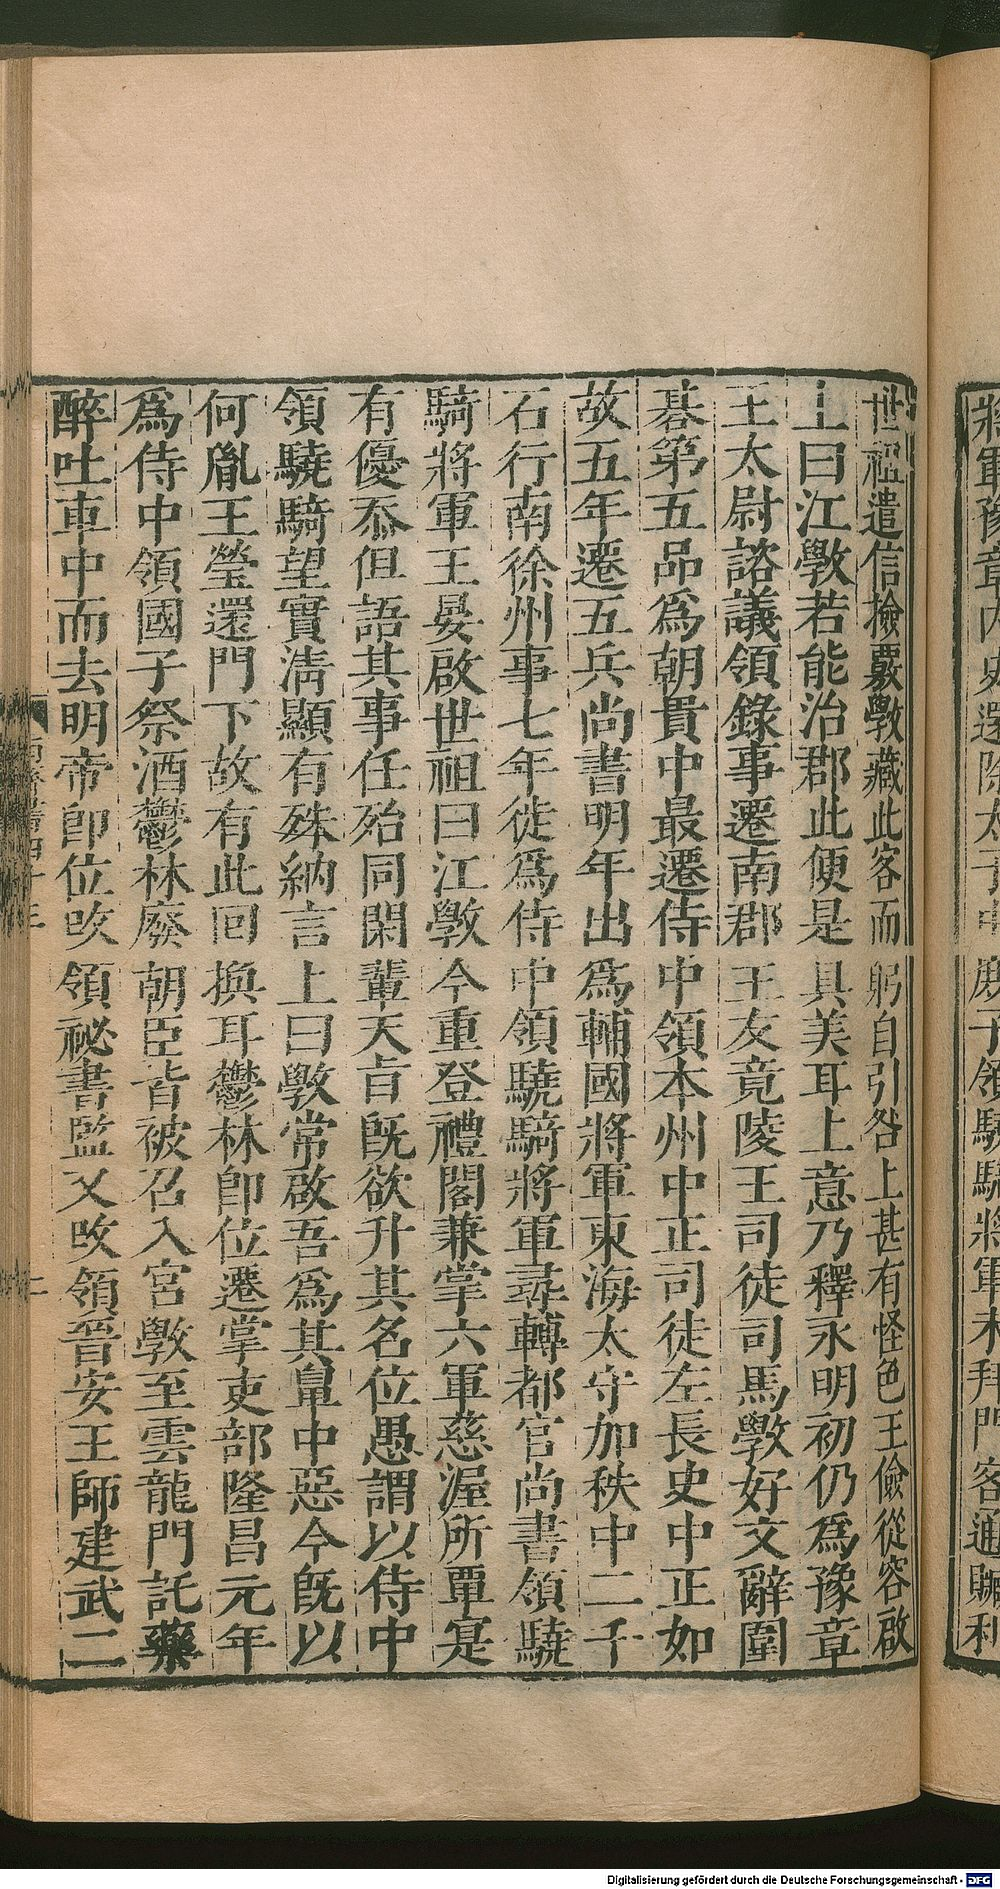 將軍豫章内史還除太子中庶子領驍騎將軍未拜門客通贓利
世祖遣信撿覈斆藏此客而躬自引咎上甚有怪色王儉從容啟
上曰江斆若能治郡此便是具美耳上意乃釋永明初仍爲豫章
王太尉諮議領錄事遷南郡王友竟陵王司徒司馬斆好文辭圍
碁第五品爲朝貴中最遷侍中領本州中正司徒左長史中正如
故五年遷五兵尚書明年出爲輔國將軍東海太守加秩中二千
石行南徐州事七年徙爲侍中領驍騎將軍尋轉都官尚書領驍
騎將軍王晏啟世祖曰江斆今重登禮閣兼掌六軍慈渥所覃寔
有優忝但語其事任殆同閑輩天旨旣欲升其名位愚謂以侍中
領驍騎望實淸顯有殊納言上曰斆常啟吾爲其鼻中惡今旣以
何胤王瑩還門下故有此回換耳鬱林卽位遷掌吏部隆昌元年
爲侍中領國子祭酒鬱林廢朝臣皆被召入宮斆至雲龍門託藥
醉吐車中而去明帝卽位改領祕書監又改領晉安王師建武二
Digitalisierung gefördert durch die Deutsche Forschungsgemeinschaft - DFG